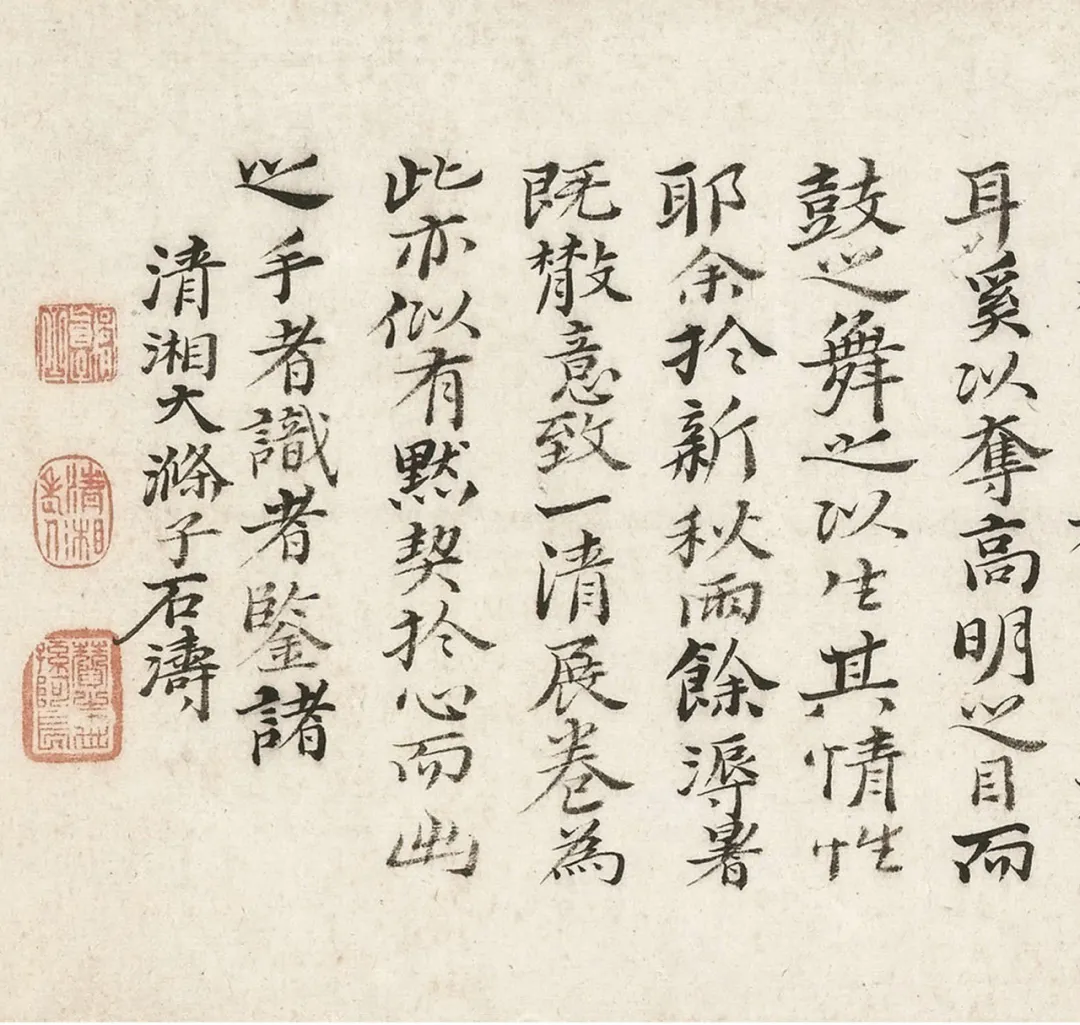 耳奚以奪高明之目而
鼓之舞之以生其情性
耶余扵新秋雨餘溽暑
既散意致一清展卷為
此亦似有默契扵心而出
之手者識者鑒諸
清湘大滌子石濤
清湘老人
贊之十世孫阿長